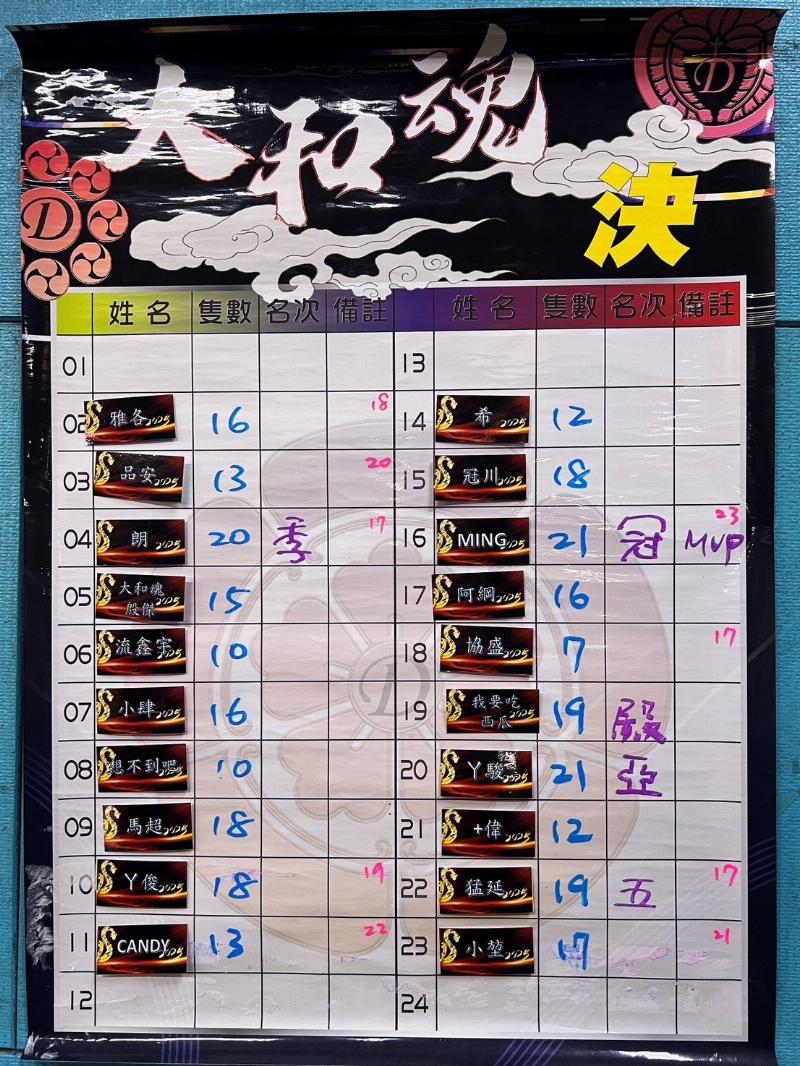 大和魂
D
D
決
姓名 隻數 名次 備註 姓名 隻數 名次 備註
01 13
02 雅各 2025 16 18 14 希 2025 12
03 品安 2025 13 20 15 冠川 2025 18
04 朗 2025 20 季 17 16 MING 2025 21 冠 23 MVP
05 大和魂 殷傑 2025 15 17 阿綱 2025 16
06 流鑫宇 2025 10 18 協盛 2025 7 17
07 小肆 2025 16 19 我要吃 西瓜 2025 19 殿
08 想不到吧 2025 10 20 丫駿 2025 21 亞
09 馬超 2025 18 21 +偉 2025 12
10 丫俊 2025 18 19 22 猛延 2025 19 五 17
11 CANDY 2025 13 22 23 小堃 2025 17 21
12 24
D